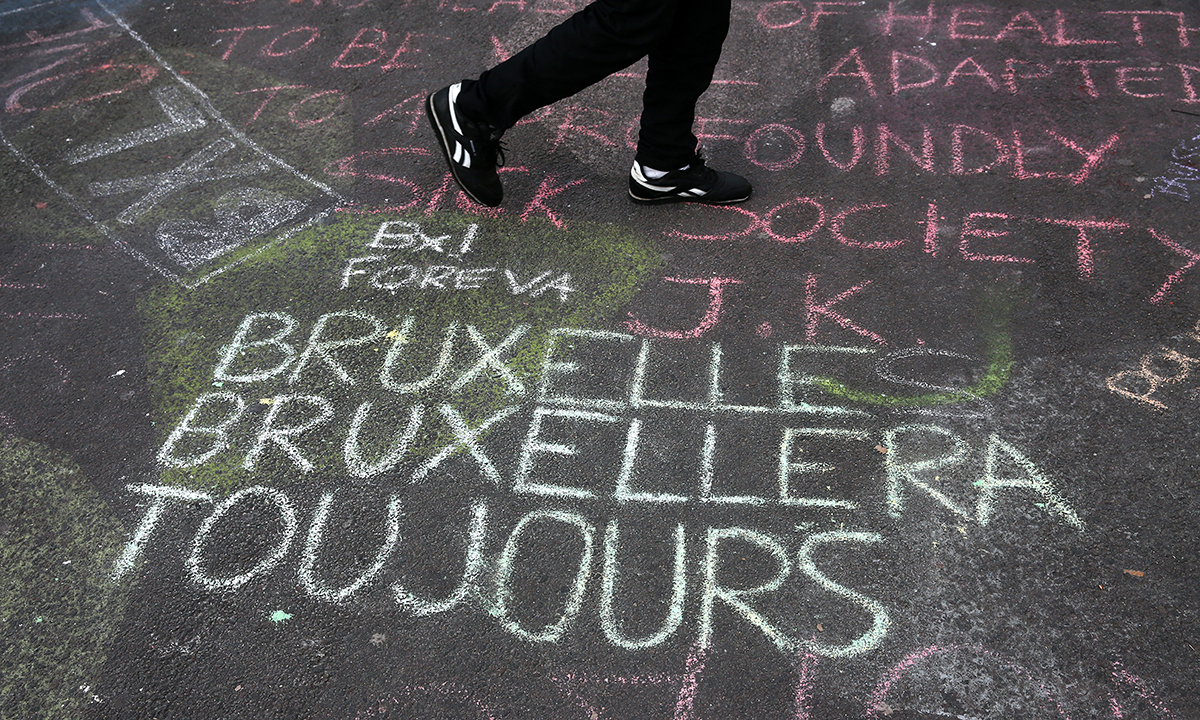 OF HEALTH
TO BE ADAPTED
TO A PROFOUNDLY
SICK SOCIETY
J.K
Bx!
FOREVA
BRUXELLES
BRUXELLERA
TOUJOURS